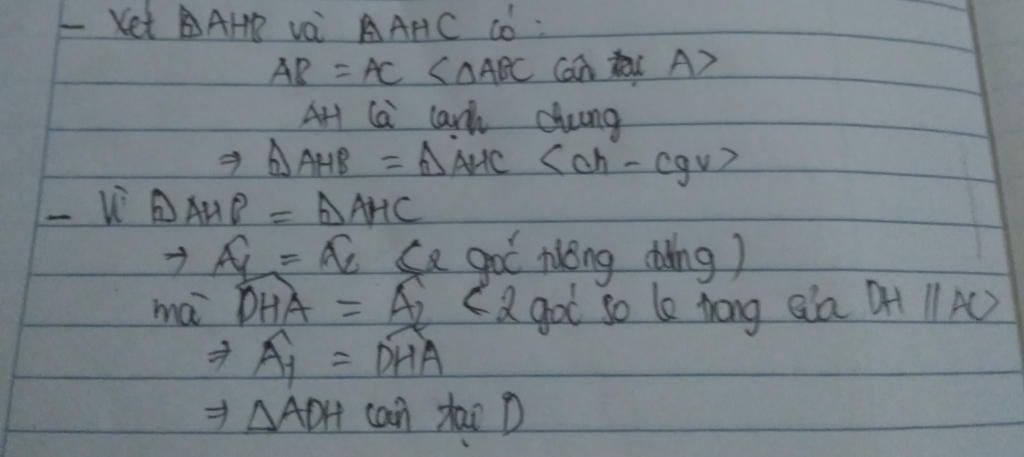 - Xét ⊿AHB và ⊿AHC có:
AB = AC <△ABC cân tại A>
AH là cạnh chung
⇒ ⊿AHB = ⊿AHC <ch - cgv>
- Vì ⊿AHB = ⊿AHC
→ Â₁ = Â₂ <2 góc tương ứng)
mà DHA = Â₂ <2 góc so le trong của DH // AC>
⇒ Â₁ = DHA
⇒ △ADH cân tại D